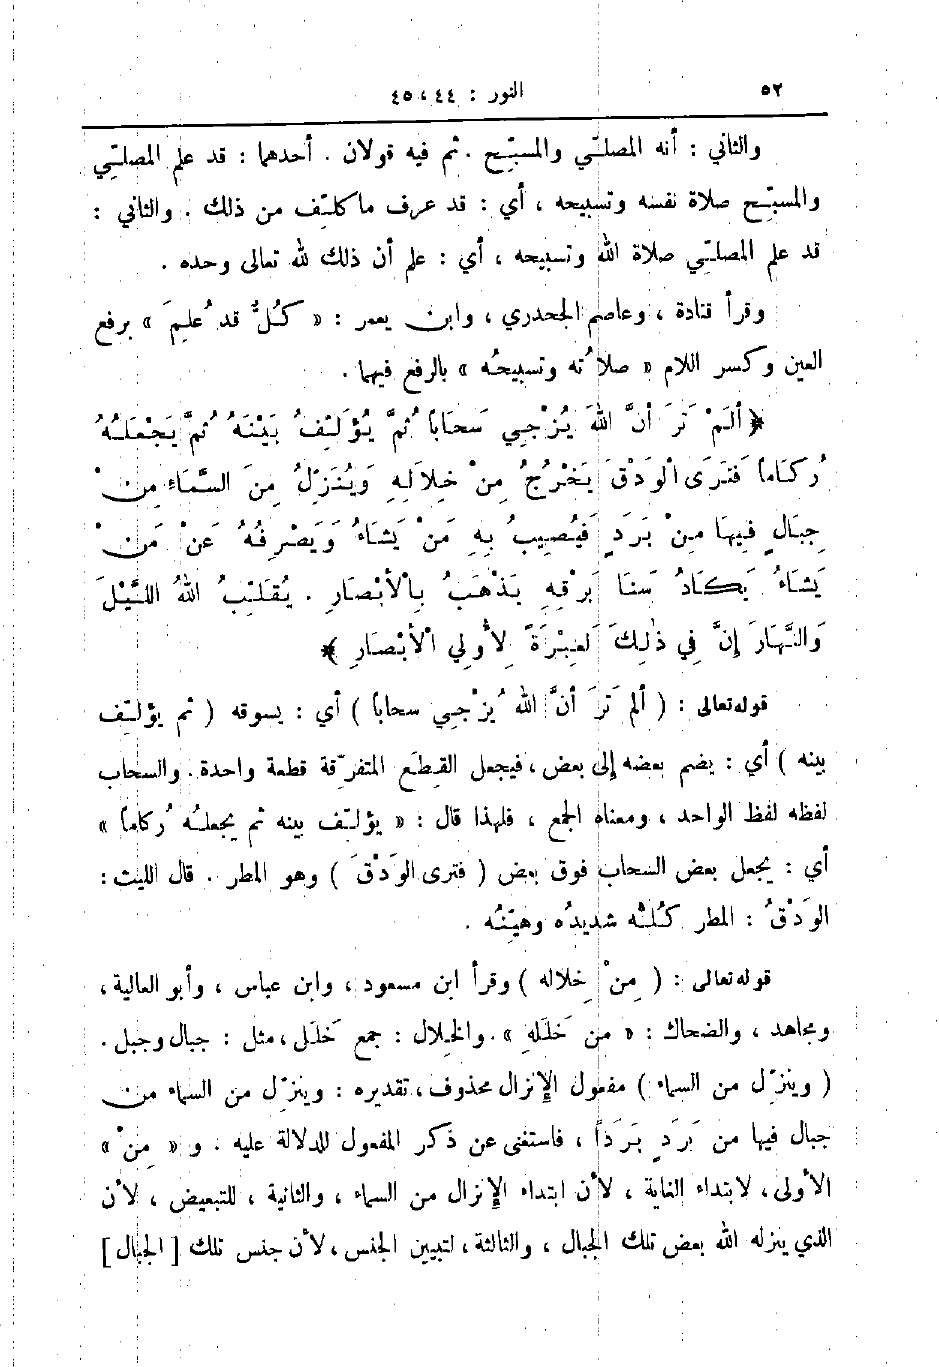 ٥٢
النور : ٤٤ ، ٤٥
والثاني : أنه المصلّي والمسبّح . ثم فيه قولان . أحدهما : قد علم المصلّي
والمسبّح صلاة نفسه وتسبيحه ، أي : قد عرف ما كلّف من ذلك . والثاني :
قد علم المصلّي صلاة الله وتسبيحه ، أي : علم أن ذلك لله تعالى وحده .
وقرأ قتادة ، وعاصم الجحدري ، وابن يعمر : « كُلٌّ قد عُلِمَ » برفع
العين وكسر اللام « صلاتُه وتسبيحُه » بالرفع فيهما .
﴿ أَلَمْ تَرَ أَنَّ اللهَ يُزْجِي سَحَاباً ثُمَّ يُؤَلِّفُ بَيْنَهُ ثُمَّ يَجْعَلُهُ
رُكَاماً فَتَرَى الْوَدْقَ يَخْرُجُ مِنْ خِلَالِهِ وَيُنَزِّلُ مِنَ السَّمَاءِ مِنْ
جِبَالٍ فِيهَا مِنْ بَرَدٍ فَيُصِيبُ بِهِ مَنْ يَشَاءُ وَيَصْرِفُهُ عَنْ مَنْ
يَشَاءُ يَكَادُ سَنَا بَرْقِهِ يَذْهَبُ بِالْأَبْصَارِ . يُقَلِّبُ اللهُ اللَّيْلَ
وَالنَّهَارَ إِنَّ فِي ذٰلِكَ لَعِبْرَةً لِأُولِي الْأَبْصَارِ ﴾
قوله تعالى : ( ألم تَرَ أنَّ الله يُزْجِي سحاباً ) أي : يسوقه ( ثم يؤلّف
بينه ) أي : يضم بعضه إلى بعض ، فيجعل القِطَع المتفرّقة قطعة واحدة . والسحاب
لفظه لفظ الواحد ، ومعناه الجمع ، فلهذا قال : « يؤلّف بينه ثم يجعلُه رُكاماً »
أي : يجعل بعض السحاب فوق بعض ( فترى الوَدْقَ ) وهو المطر . قال الليث :
الوَدْقُ : المطر كُلُّه شديدُه وهيّنُه .
قوله تعالى : ( مِنْ خِلاله ) وقرأ ابن مسعود ، وابن عباس ، وأبو العالية ،
ومجاهد ، والضحاك : « من خَلَلِهِ » . والخِلال : جمع خَلَل ، مثل : جبال وجبل .
( وينزِّل من السماء ) مفعول الإنزال محذوف ، تقديره : وينزِّل من السماء من
جبال فيها من بَرَدٍ بَرَداً ، فاستغنى عن ذكر المفعول للدلالة عليه . و « مِنْ »
الأولى ، لابتداء الغاية ، لأن ابتداء الإنزال من السماء ، والثانية ، للتبعيض ، لأن
الذي ينزله الله بعض تلك الجبال ، والثالثة ، لتبيين الجنس ، لأن جنس تلك [ الجبال ]